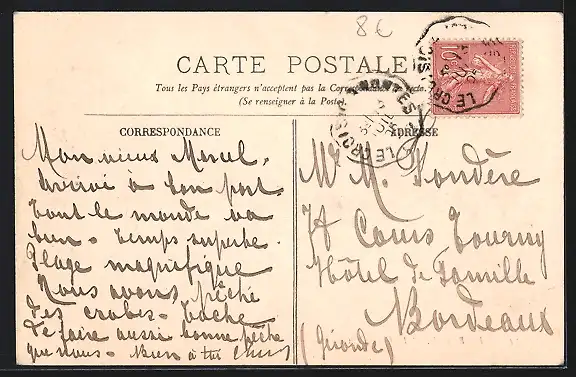 8€
CARTE POSTALE
Tous les Pays étrangers n'acceptent pas la Correspondance au recto.
(Se renseigner à la Poste).
CORRESPONDANCE
Mon vieux Marcel,
Arrivé à bon port
tout le monde va
bien - temps superbe.
Plage magnifique
Nous avons pêché
des crabes - tâche
de faire aussi bonne pêche
que nous - Bien à tus
ADRESSE
Mr M. Fondère
Cours Tourny
Hôtel de Famille
Bordeaux
(Gironde)
LE CROISIC
LE CROISIC A NANTES
10